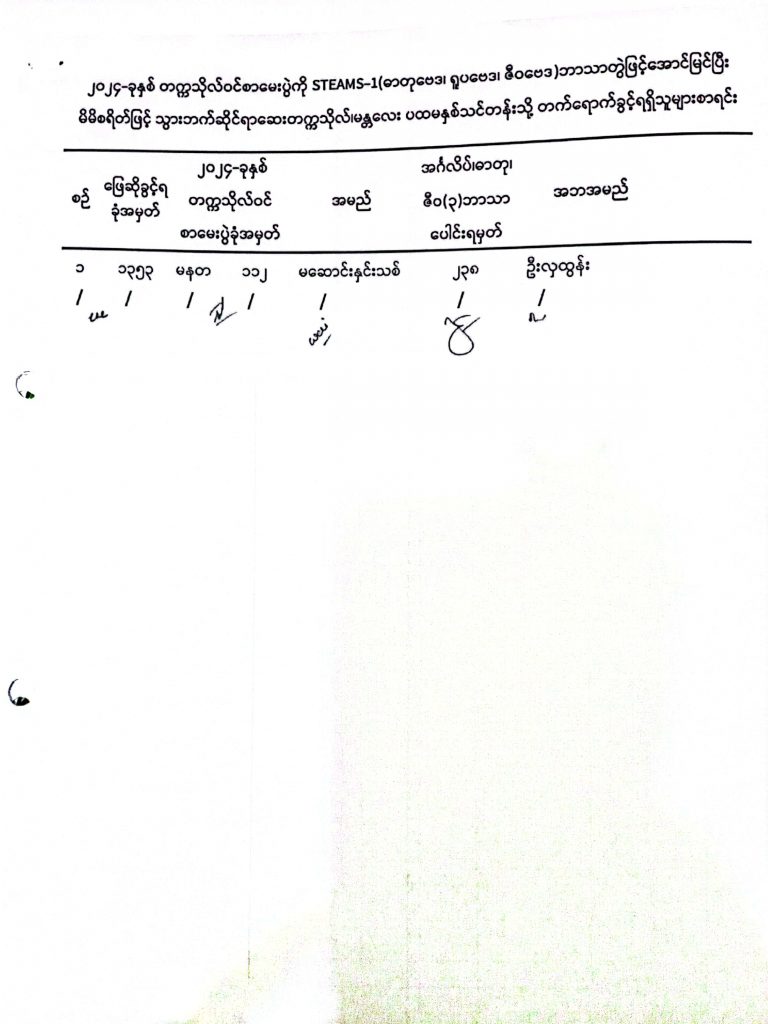 ၂၀၂၄-ခုနှစ် တက္ကသိုလ်ဝင်စာမေးပွဲကို STEAMS-1(ဓာတုဗေဒ၊ ရူပဗေဒ၊ ဇီဝဗေဒ)ဘာသာတွဲဖြင့်အောင်မြင်ပြီး
မိမိစရိတ်ဖြင့် သွားဘက်ဆိုင်ရာဆေးတက္ကသိုလ်၊မန္တလေး ပထမနှစ်သင်တန်းသို့ တက်ရောက်ခွင့်ရရှိသူများစာရင်း
စဉ်
ဖြေဆိုခွင့်ရ
ခုံအမှတ်
၂၀၂၄-ခုနှစ်
တက္ကသိုလ်ဝင်
စာမေးပွဲခုံအမှတ်
အမည်
အင်္ဂလိပ်၊ဓာတု၊
ဇီဝ(၃)ဘာသာ
ပေါင်းရမှတ်
အဘအမည်
၁ ၁၃၅၃ မနတ ၁၁၂ မဆောင်းနှင်းသစ် ၂၃၈ ဦးလှထွန်း
/ / / / / / /